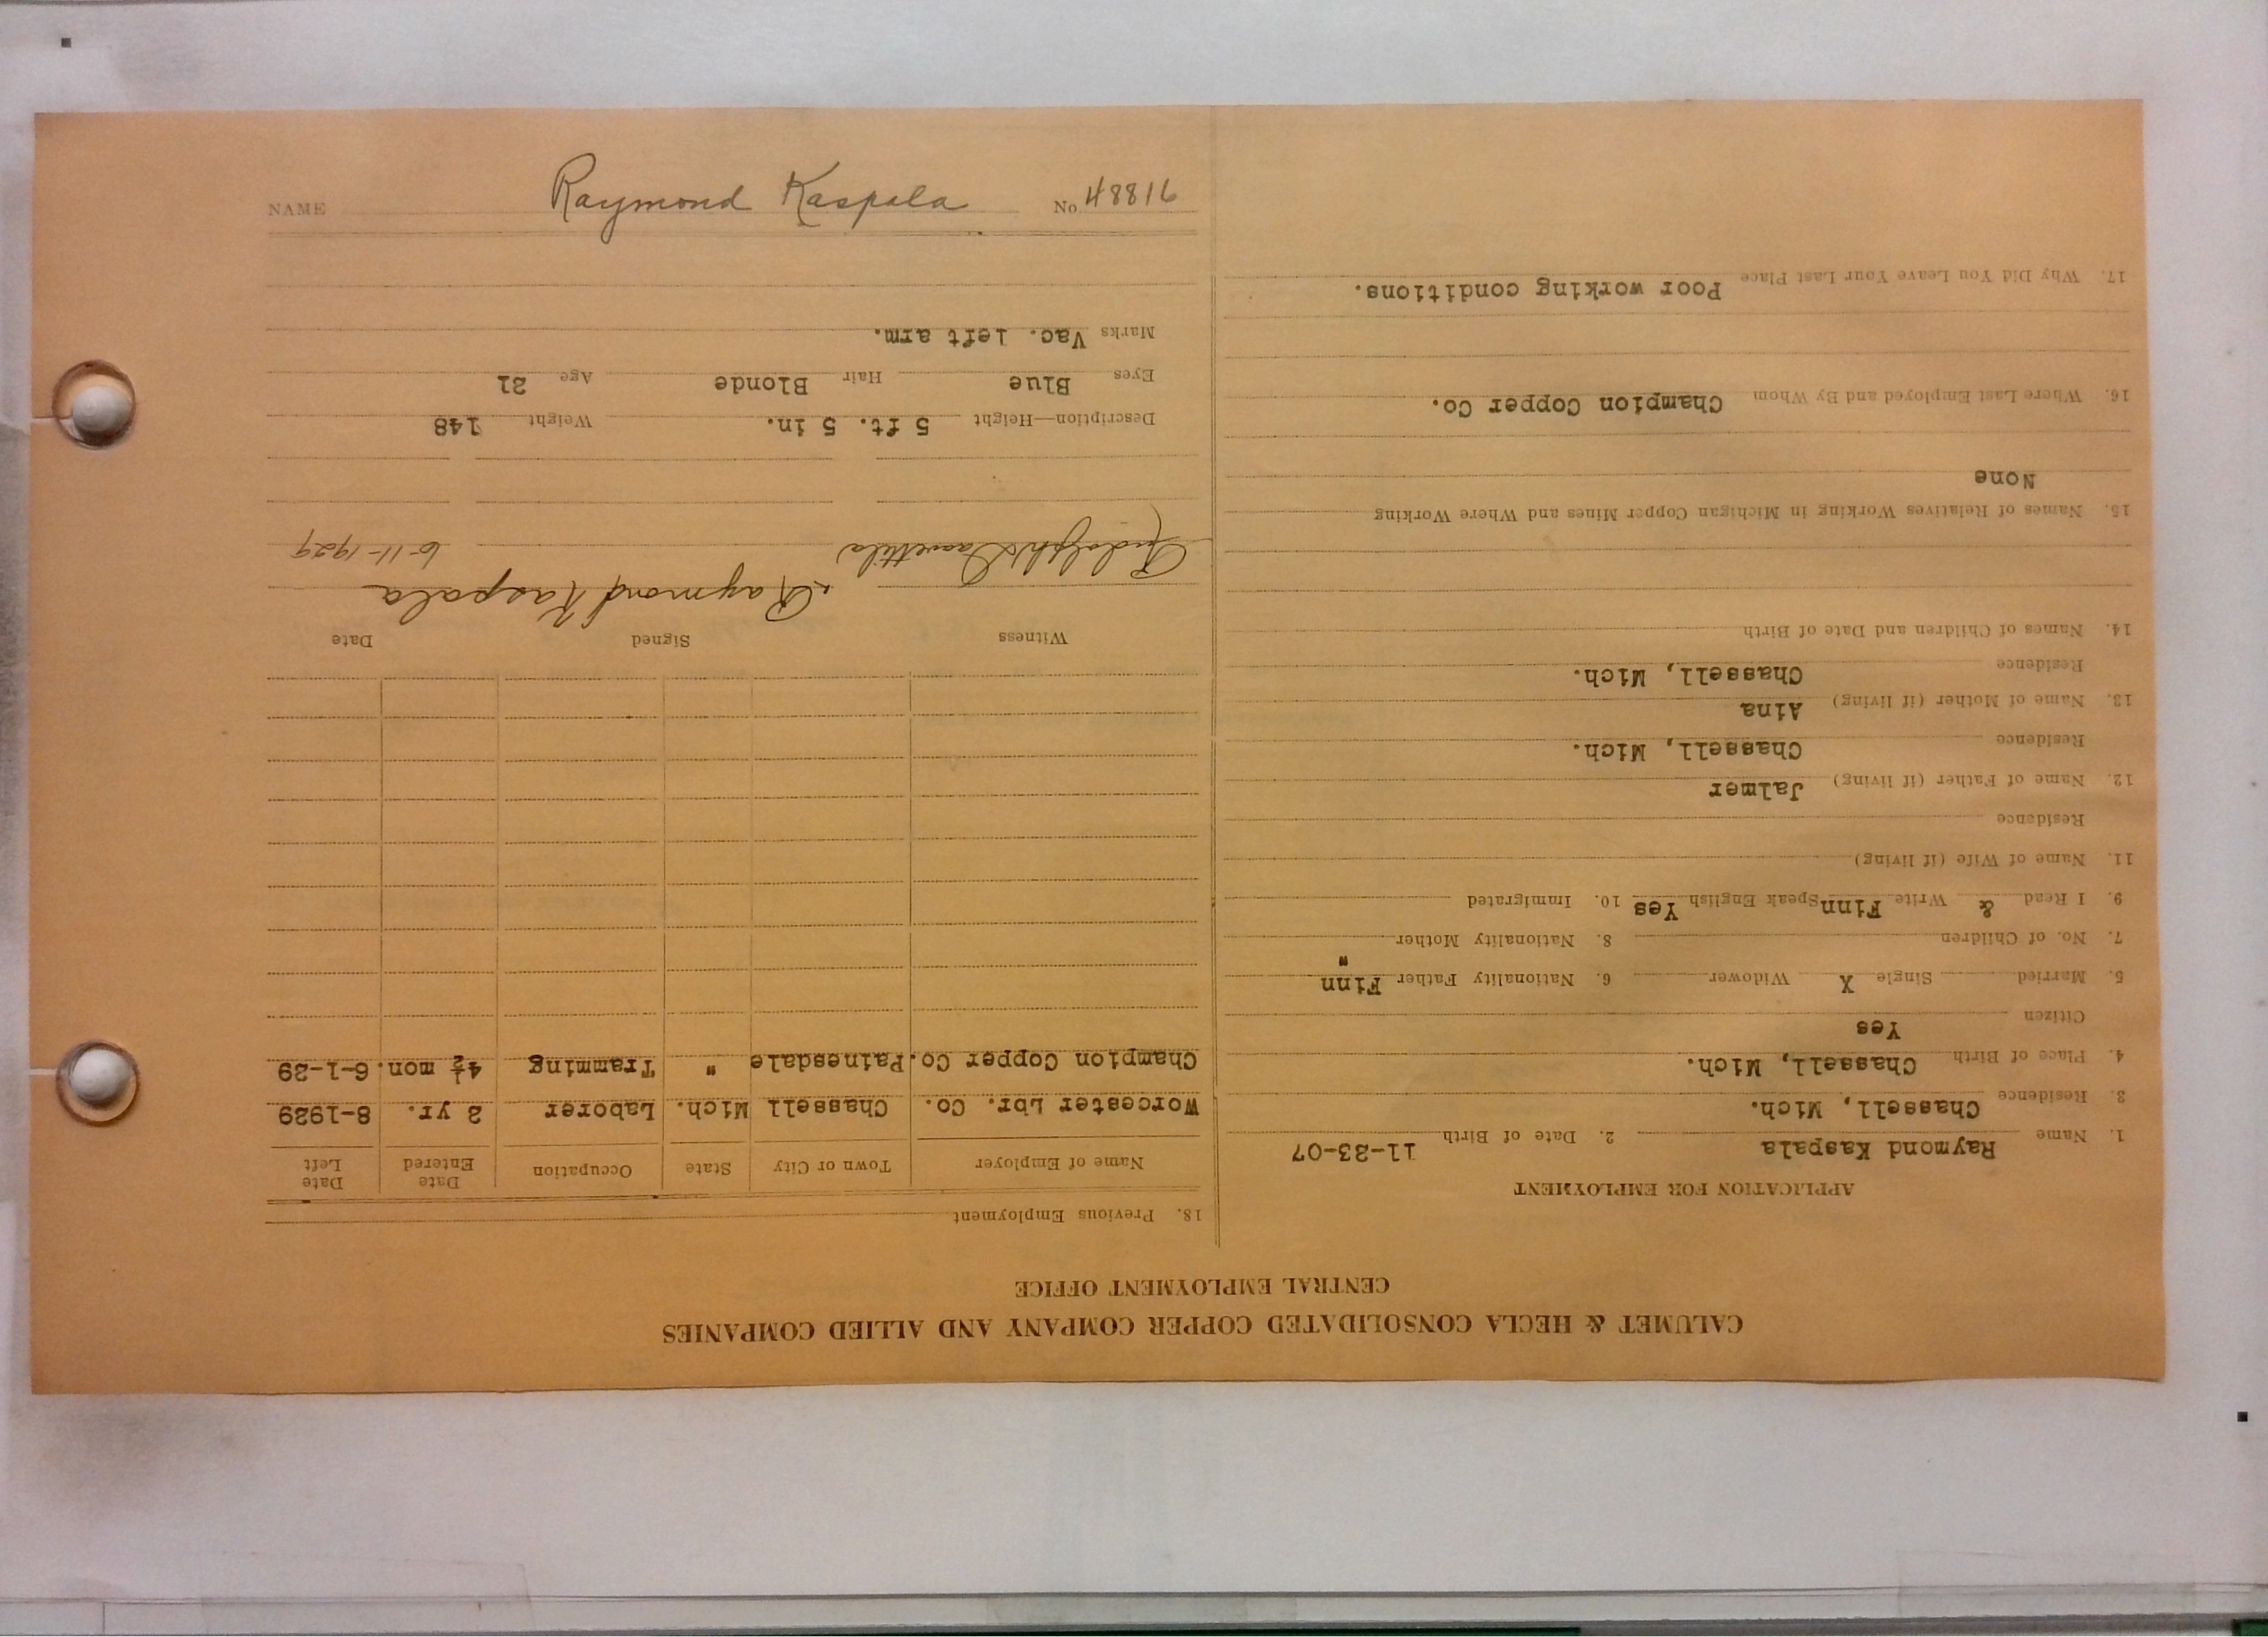 NAME Raymond Kaspala No 48816
CALUMET & HECLA CONSOLIDATED COPPER COMPANY AND ALLIED COMPANIES
CENTRAL EMPLOYMENT OFFICE
APPLICATION FOR EMPLOYMENT
1. Name Raymond Kaspala 2. Date of Birth 11-23-07
3. Residence Chassell, Mich.
4. Place of Birth Chassell, Mich.
Citizen Yes
5. Married Single X Widower 6. Nationality Father Finn
7. No. of Children 8. Nationality Mother "
9. I Read & Write Finn Speak English Yes 10. Immigrated
11. Name of Wife (if living)
Residence
12. Name of Father (if living) Jalmer
Residence Chassell, Mich.
13. Name of Mother (if living) Aina
Residence Chassell, Mich.
14. Names of Children and Date of Birth
15. Names of Relatives Working in Michigan Copper Mines and Where Working
None
16. Where Last Employed and By Whom Champion Copper Co.
17. Why Did You Leave Your Last Place Poor working conditions.
18. Previous Employment
Name of Employer Town or City State Occupation Date Entered Date Left
Worcester Lbr. Co. Chassell Mich. Laborer 2 yr. 8-1929
Champion Copper Co. Painesdale " Tramming 4½ mon. 6-1-29
Witness Signed Date
Rudolph Raymond Kaspala 6-11-1929
Description—Height 5 ft. 5 in. Weight 148
Eyes Blue Hair Blonde Age 21
Marks Vac. left arm.